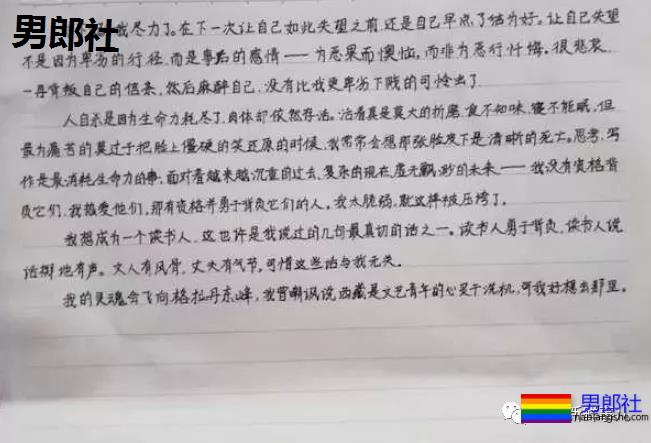 男郎社
我尽力了。在下一次让自己如此失望之前还是自己早点了结为好。让自己失望
不是因为卑劣的行径,而是事后的感情——为恶果而懊恼,而非为恶行忏悔。很悲哀。
一再背叛自己的信条,然后麻醉自己,没有比我更卑劣下贱的可怜虫了
人自杀是因为生命力耗尽了,肉体却依然存活。活着真是莫大的折磨,食不知味,寝不能眠,但
最为痛苦的莫过于把脸上僵硬的笑还原的时候,我常常会想那张脸皮下是清晰的死亡。思考、写
作是最消耗生命力的事,面对着越来越沉重的过去、复杂的现在、虚无飘渺的未来——我没有资格背
负它们,我敬爱他们,那有资格并勇于背负它们的人。我太脆弱,就这样被压垮了。
我想成为一个读书人,这也许是我说过的几句最真切的话之一。读书人勇于背负,读书人说
话掷地有声。文人有风骨,丈夫有气节,可惜这些话与我无关。
我的灵魂会飞向格拉丹东峰,我曾嘲讽说西藏是文艺青年的心灵干洗机,可我好想去那里。
男郎社
nanlangshe.com